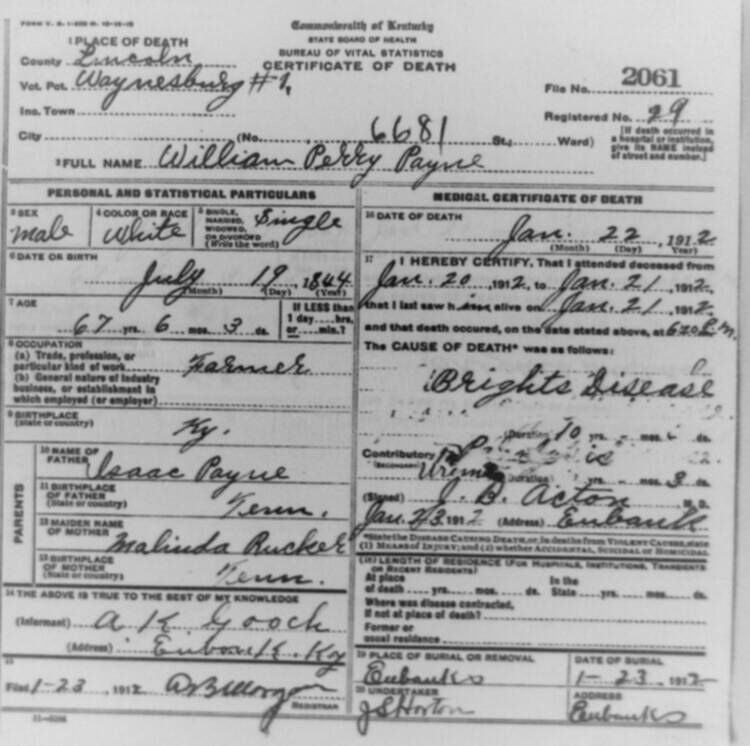 Commonwealth of Kentucky
STATE BOARD OF HEALTH
BUREAU OF VITAL STATISTICS
CERTIFICATE OF DEATH
1 PLACE OF DEATH
County Lincoln
Vot. Pct. Waynesburg #1,
Inc. Town
City (No. 6681 St.; Ward)
File No. 2061
Registered No. 29
[If death occurred in a hospital or institution, give its NAME instead of street and number.]
2 FULL NAME William Perry Payne
PERSONAL AND STATISTICAL PARTICULARS
3 SEX male
4 COLOR OR RACE White
5 SINGLE, MARRIED, WIDOWED, OR DIVORCED (Write the word) Single
6 DATE OF BIRTH
July 19, 1844
(Month) (Day) (Year)
7 AGE
67 yrs. 6 mos. 3 ds.
If LESS than 1 day....hrs. or....min.?
8 OCCUPATION
(a) Trade, profession, or particular kind of work Farmer
(b) General nature of industry business, or establishment in which employed (or employer)
9 BIRTHPLACE
(State or country) Ky.
PARENTS
10 NAME OF FATHER Isaac Payne
11 BIRTHPLACE OF FATHER
(State or country) Tenn.
12 MAIDEN NAME OF MOTHER Malinda Rucker
13 BIRTHPLACE OF MOTHER
(State or country) Tenn.
14 THE ABOVE IS TRUE TO THE BEST OF MY KNOWLEDGE
(Informant) A K Gooch
(Address) Eubank, Ky
15
Filed 1-23, 1912
REGISTRAR
MEDICAL CERTIFICATE OF DEATH
16 DATE OF DEATH
Jan. 22, 1912
(Month) (Day) (Year)
17 I HEREBY CERTIFY, That I attended deceased from
Jan. 20, 1912, to Jan. 21, 1912
that I last saw h alive on Jan. 21, 1912
and that death occured, on the date stated above, at m.
The CAUSE OF DEATH* was as follows:
Brights Disease
(Duration) 10 yrs. mos. ds.
Contributory
(SECONDARY)
(Duration) yrs. mos. 3 ds.
(Signed) J. B. Acton M. D.
Jan. 23, 1912 (Address) Eubank
*State the DISEASE CAUSING DEATH, or, in deaths from VIOLENT CAUSES, state
(1) MEANS OF INJURY; and (2) whether ACCIDENTAL, SUICIDAL or HOMICIDAL
(18) LENGTH OF RESIDENCE (FOR HOSPITALS, INSTITUTIONS, TRANSIENTS OR RECENT RESIDENTS)
At place of death yrs. mos. ds.
In the State yrs. mos. ds.
Where was disease contracted,
If not at place of death?
Former or
usual residence
19 PLACE OF BURIAL OR REMOVAL
Eubanks
DATE OF BURIAL
1-23, 1912
20 UNDERTAKER
J S Horton
ADDRESS
Eubanks